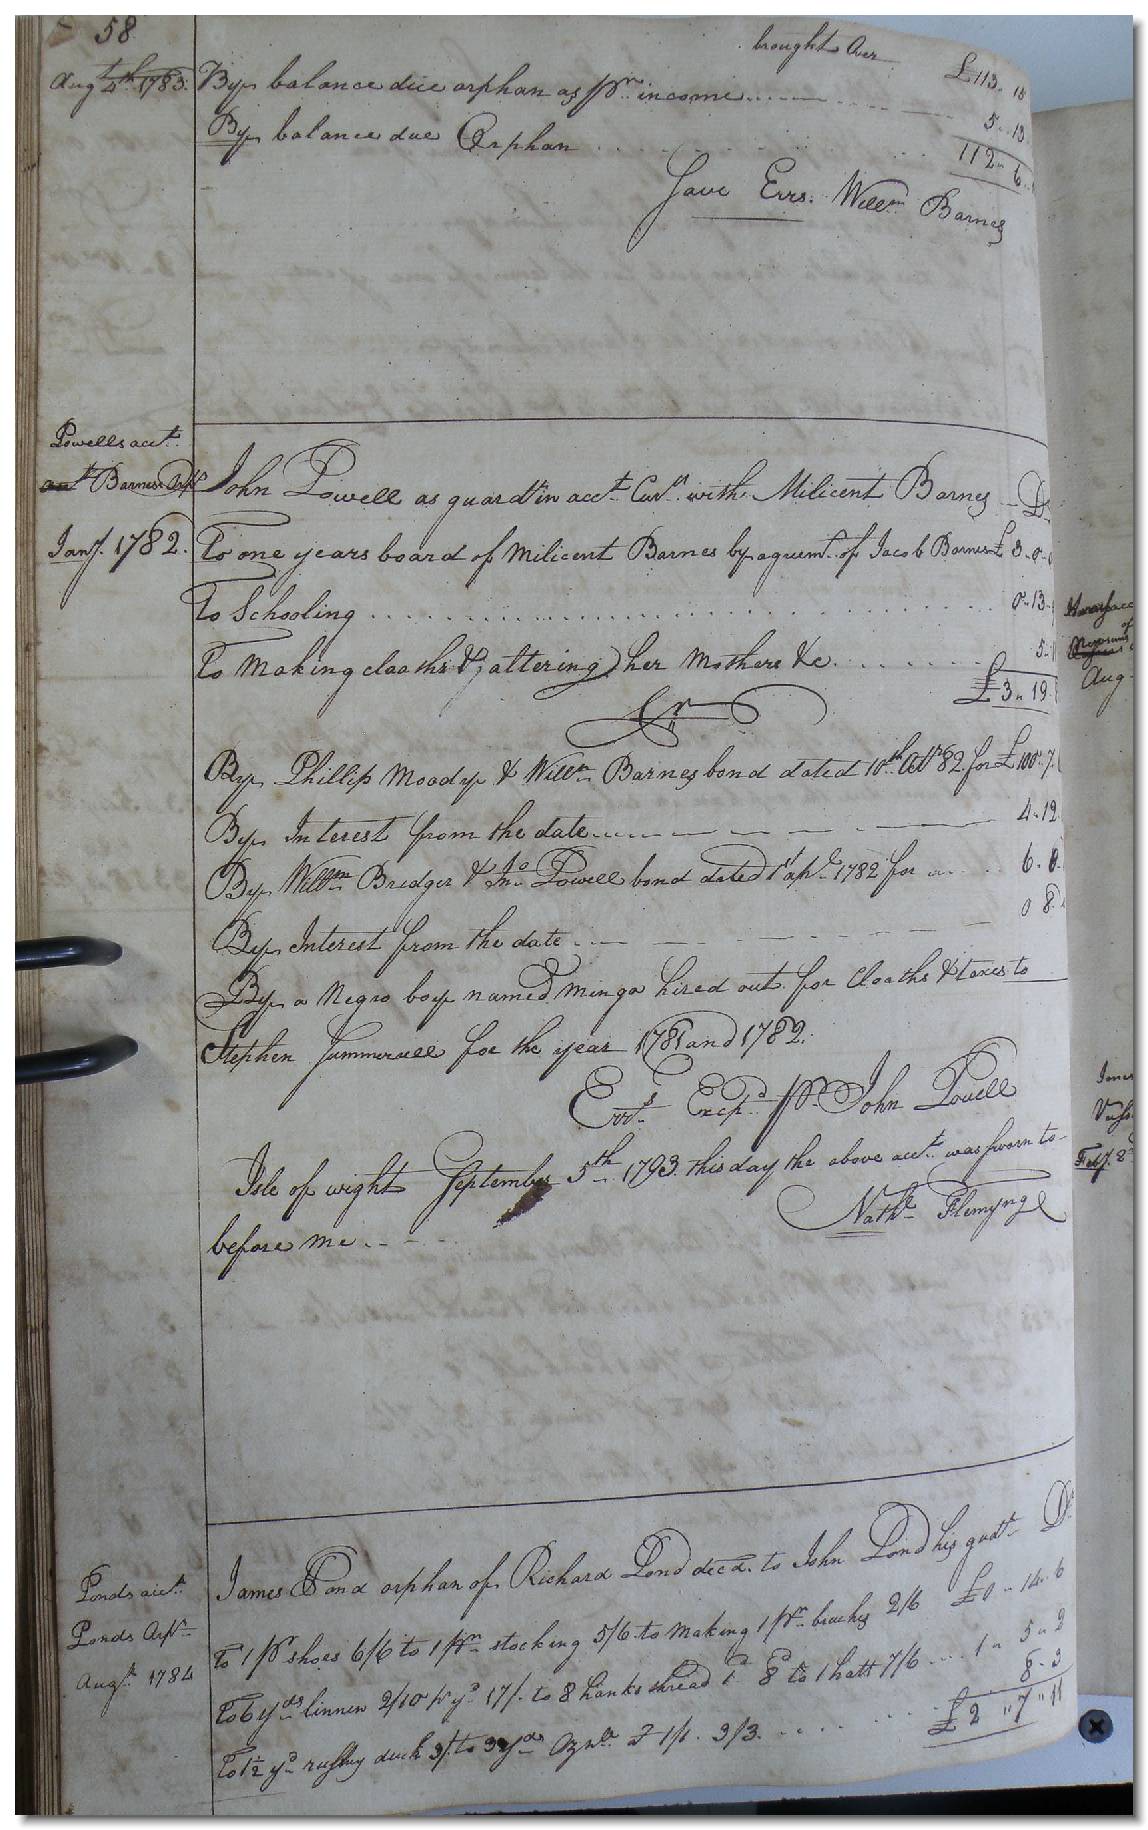 58
brought Over £113.. 15
Augt. 4th. 1783. By balance dice orphan as pr. income 5..13
By balance due Orphan 112.. 6
Save Errs. Willm Barnes
Powells acct.
Barnes Orpn John Powell as guardin acct. Curt. with Milicent Barnes Dr
Jany. 1782. To one years board of Milicent Barnes by agremt. of Jacob Barnes £ 3..0..0
To Schooling 0..13..
To making cloaths & altering her Mothers &c 5..
£3.. 19
Cr
By Phillip Moody & Willm Barnes bond dated 10th. Octr. 82 for £100.. 7.
By Interest from the date 4..12
By Willm Bridger & Jno. Powell bond dated 1st apl. 1782 for 6.. 0.
By Interest from the date 0 8.
By a Negro boy named Mingo hired out for Cloaths & taxes to
Stephen Summerell for the year 1781 and 1782.
Errs. Excpd. Pr. John Powell
Isle of wight September 5th. 1793. this day the above acct. was sworn to
before me
Nathl. Flemyng
Ponds acct.
Ponds Orpn.
Augt. 1784
James Pond orphan of Richard Pond decd. to John Pond his gudn. Dr
To 1 pr shoes 6/6 to 1 pr. stocking 5/6 to making 1 pr. breeches 2/6 £0.. 14.. 6
To 6 yds linnen 2/10 pr yd. 17/. to 8 hanks thread 8d to 1 hatt 7/6 1.. 5.. 2
To 1½ yd. duck 3/. to 3 yds Ozna. @ 1/1. 3/3. 8.. 3
£2 ..7 ..11
Aug